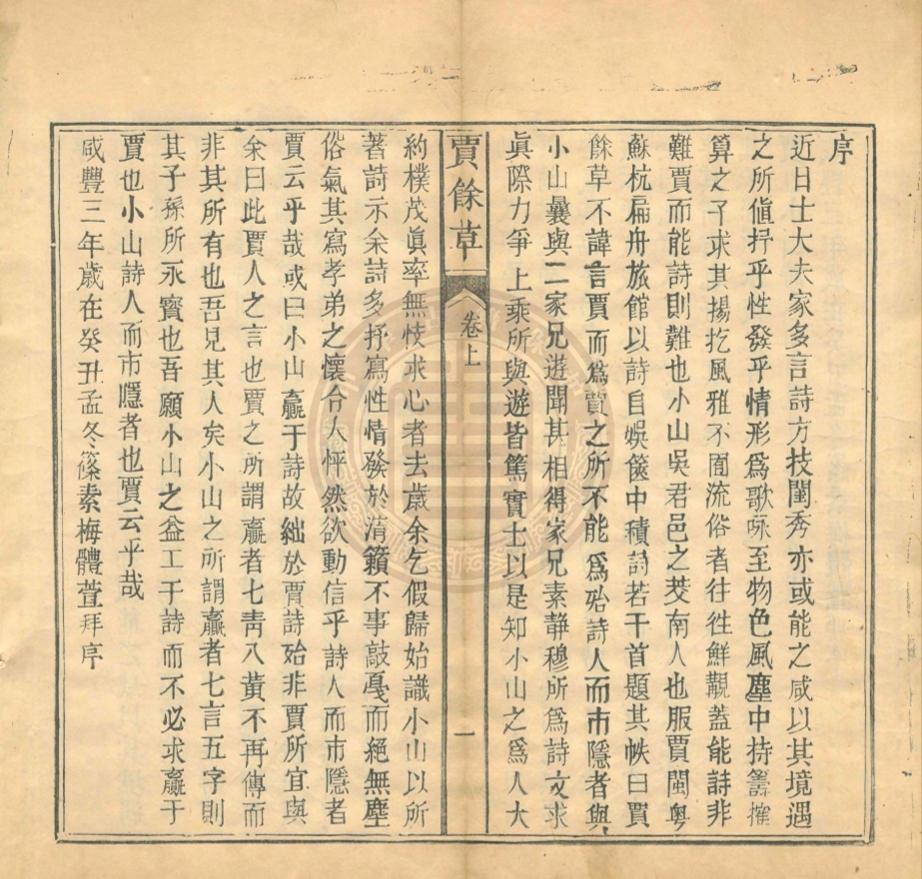 序
近日士大夫家多言詩方技閨秀亦或能之咸以其境遇
之所値抒乎性發乎情形爲歌咏至物色風塵中持籌摧
算之子求其揚扢風雅不囿流俗者往徃鮮覯蓋能詩非
難賈而能詩則難也小山吳君邑之茭南人也服賈閩粤
蘇杭扁舟旅館以詩自娛篋中積詩若干首題其帙曰賈
餘草不諱言賈而爲賈之所不能爲殆詩人而市隱者與
小山曩與二家兄遊聞甚相得家兄素静穆所爲詩文求
眞際力爭上乘所與遊皆篤實士以是知小山之爲人大
賈餘草
卷上
一
約樸茂眞率無忮求心者去歲余乞假歸始識小山以所
著詩示余詩多抒寫性情發於清籟不事敲戛而絕無塵
俗氣其寫孝弟之懷令人怦然欲動信乎詩人而市隱者
賈云乎哉或曰小山贏于詩故絀於賈詩殆非賈所宜與
余曰此賈人之言也賈之所謂贏者七靑八黃不再傳而
非其所有也吾見其人矣小山之所謂贏者七言五字則
其子孫所永寳也吾願小山之益工于詩而不必求贏于
賈也小山詩人而市隱者也賈云乎哉
咸豐三年歲在癸丑孟冬篠素梅體萱拜序